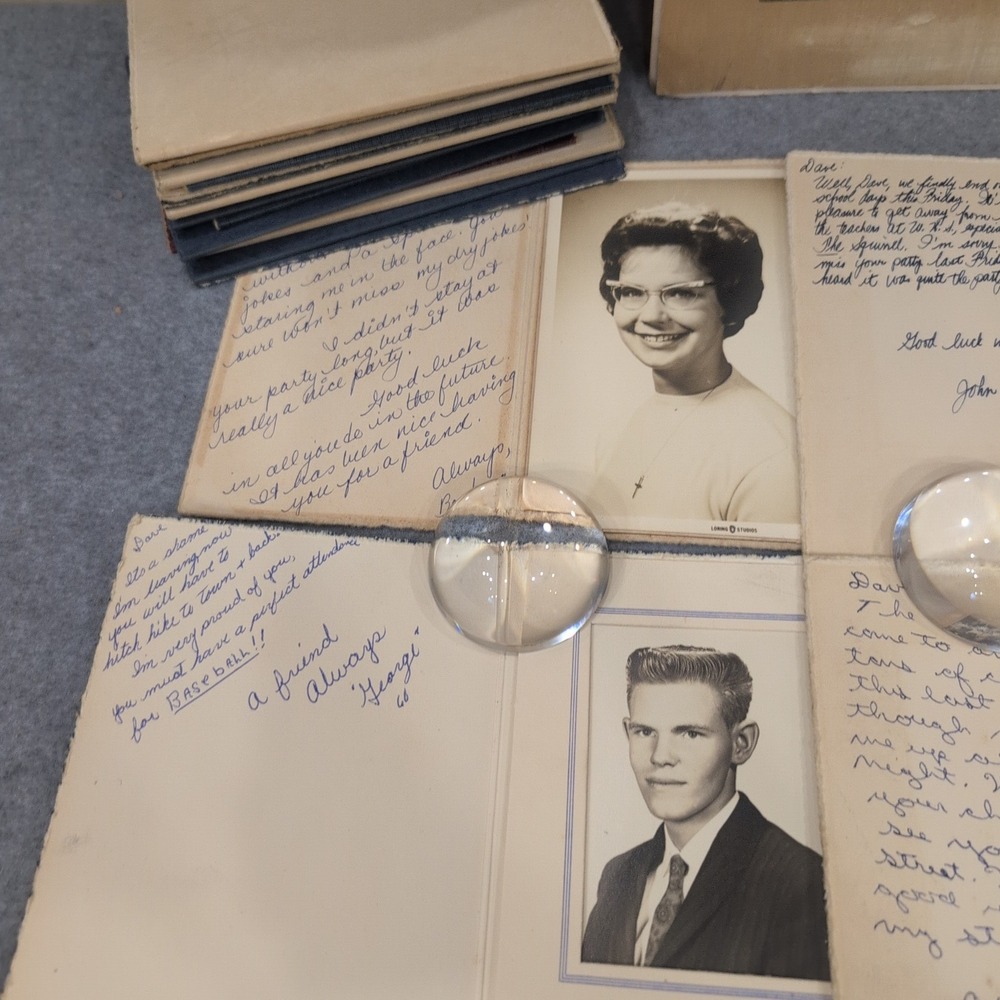 without
jokes and a
staring me in the face. You
sure won't miss my dry jokes!
I didn't stay at
your party long, but it was
really a nice party.
Good luck
in all you do in the future.
It has been nice having
you for a friend.
Always,
LORING STUDIOS
Dave:
Well, Dave, we finally end
school days this Friday. It's
pleasure to get away from
the teachers at W.H.S, especia
The Squirrel. I'm sorry
miss your party last Frid
heard it was quite the party
Good luck
John
Dave
Its a shame
I'm leaving now
you will have to
hitch hike to town + back.
Im very proud of you,
you must have a perfect attendance
for BASEbALL!!
A friend
Always
"Georgi"
Dav
The
come to
tons of
this last
though
me up
night.
your ch
see yo
street.
good
my st